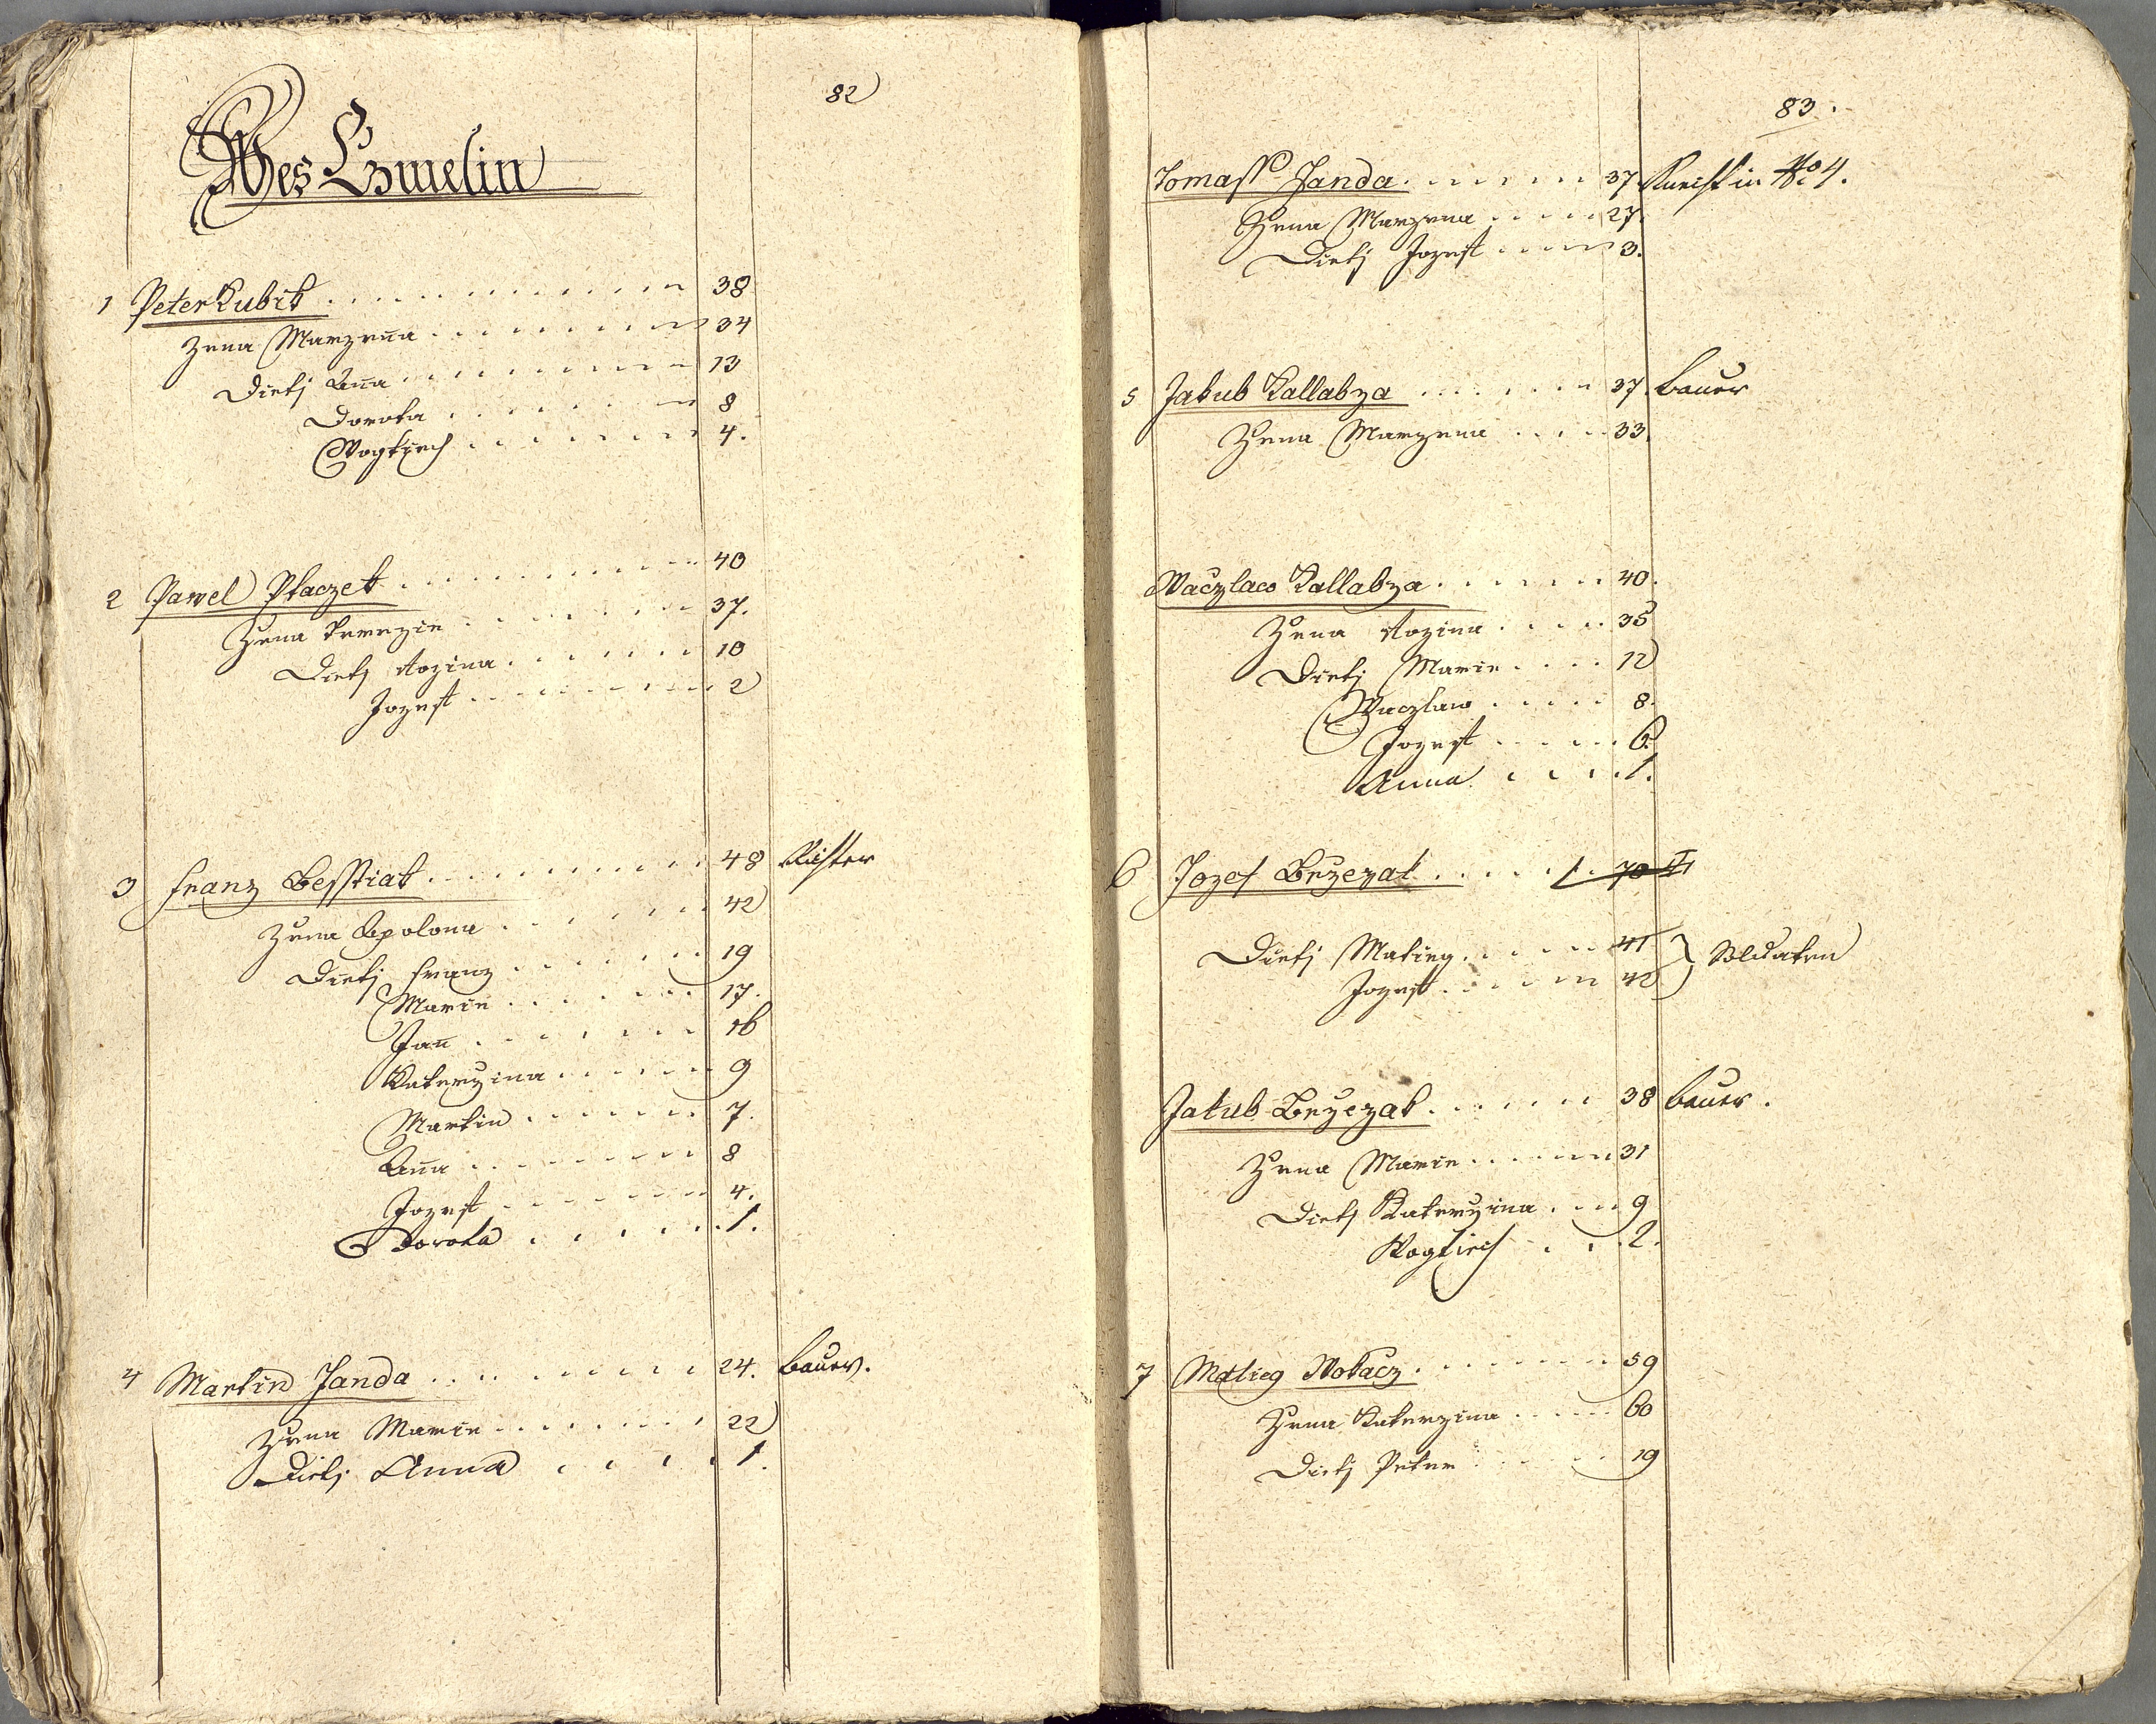 82
Wes Czmelin
1 Peter Kubik 38
Zena Marzena 34
Dietj Aña 13
Dorota 8
Wogtiech 4.
2 Pawel Ptaczek 40
Zena Terezie 37.
Dietj Rozina 10
Jozeff 2
3 Franz Besstiak 48 Richter
Zena Apolona 42
Dietj Franz 19
Marie 17.
Jañ 16
Katerzina 9
Martin 7.
Aña 8
Jozeff 4.
Dorota 1.
4 Martin Janda 24. Bauer.
Zena Marie 22
Dietj Anna 1.
83.
Tomass Janda 37 Knecht in No 4.
Zena Marzena 27.
Dietj Jozeff 3.
5 Jakub Kallabza 37. Bauer
Zena Marzena 33.
Waczlaw Kallabza 40.
Zena Rozina 35
Dietj Marie 12
Waczlaw 8.
Jozeff 6.
Anna 1.
6 Jozef Brzezak 70
Dietj Matieg 41
Jozeff 40 Soldaten
Jakub Brzezak 38 Bauer.
Zena Marie 31
Dietj Katerzina 9
Wogtiech 2.
7 Matieg Wokacz 59
Zena Katerzina 60
Dietj Peter 19